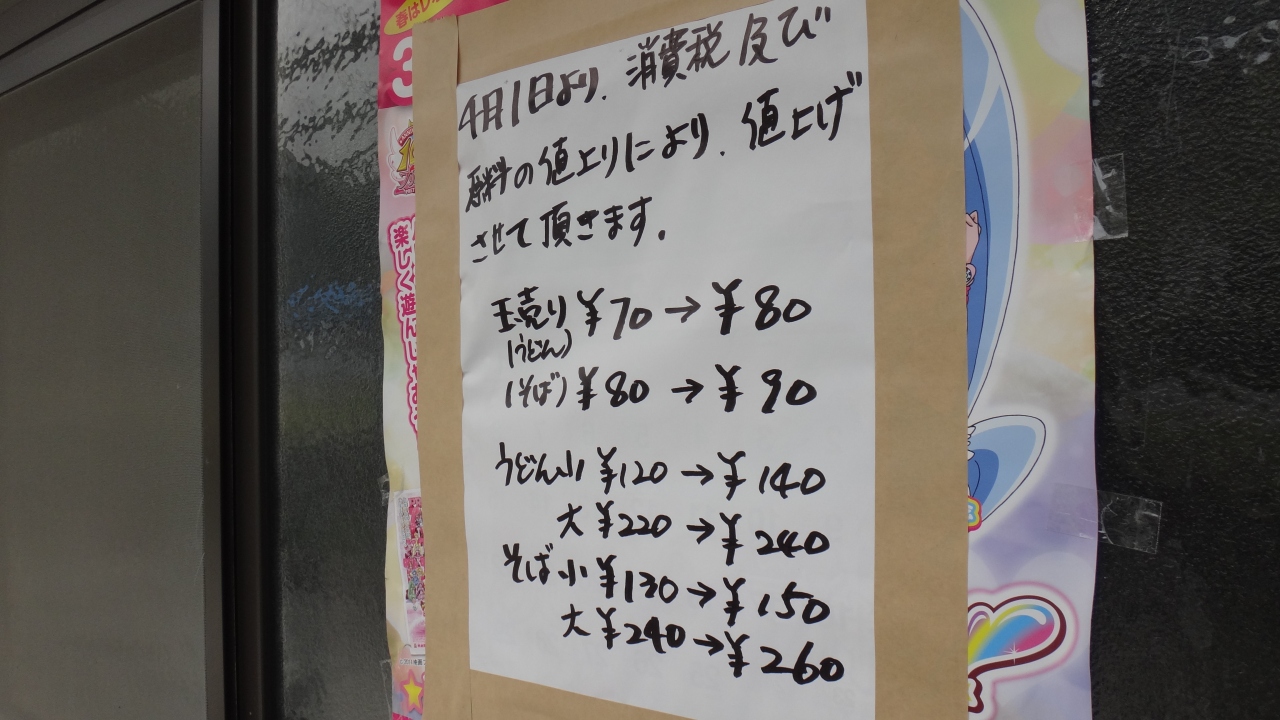 春はレ
3
楽しく遊んじゃおう
4月1日より、消費税及び
原料の値上りにより、値上げ
させて頂きます。
玉売り ¥70→¥80
(うどん)
(そば) ¥80→¥90
うどん小 ¥120→¥140
大 ¥220→¥240
そば小 ¥130→¥150
大 ¥240→¥260